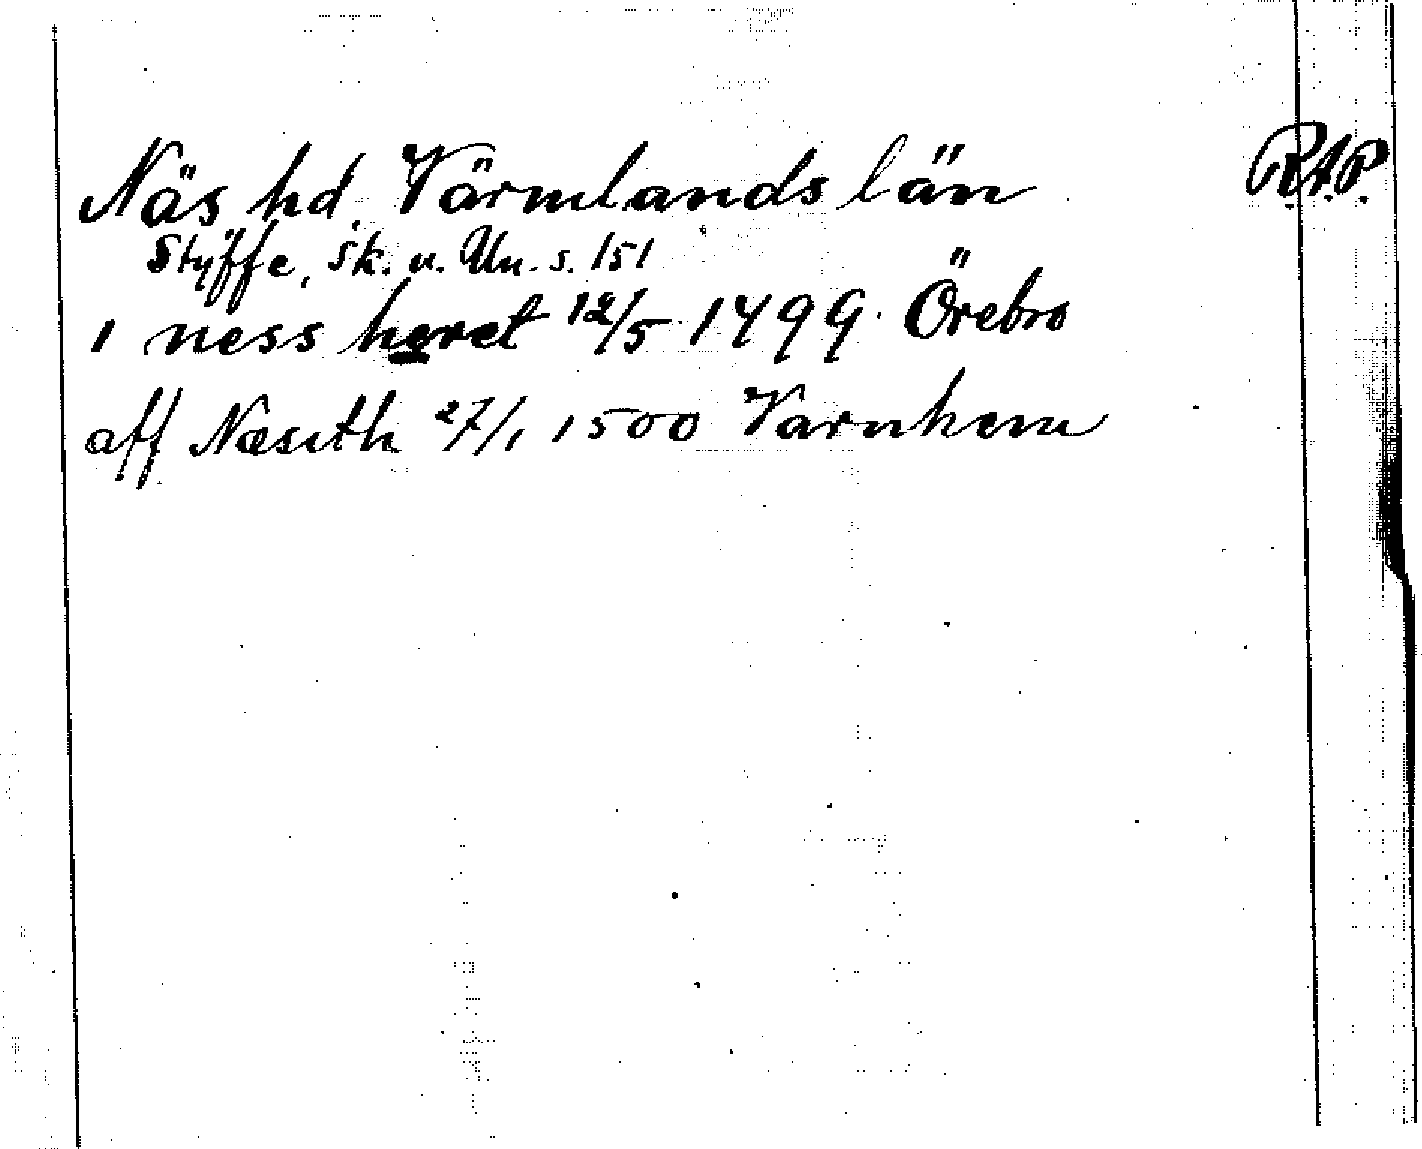 Näs hd. Värmlands län R.A.P.
Styffe, Sk. u. Un. s. 151
i ness heret 12/5 1499 Örebro
aff Næsith 27/1 1500 Varnhem